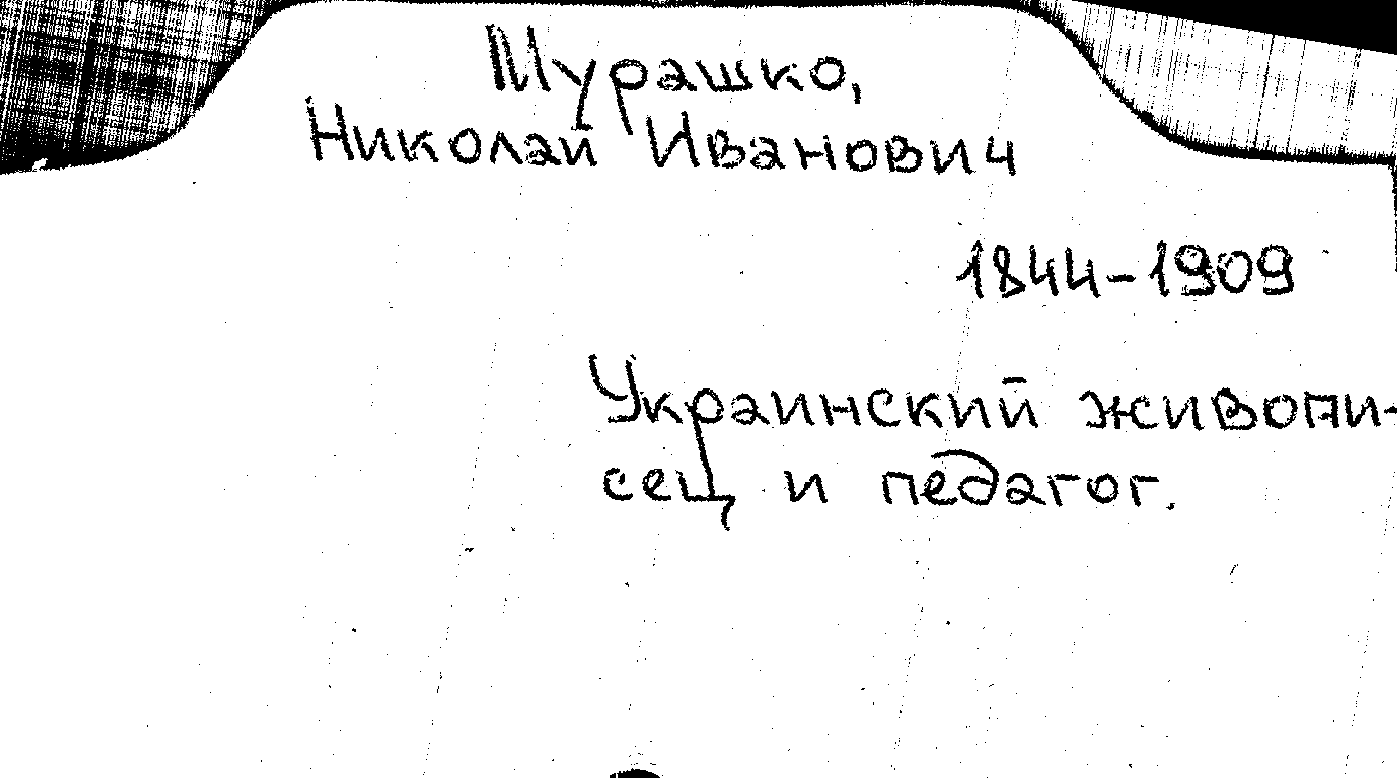 Мурашко,
Николай Иванович
1844-1909
Украинский живопи-
сец и педагог.